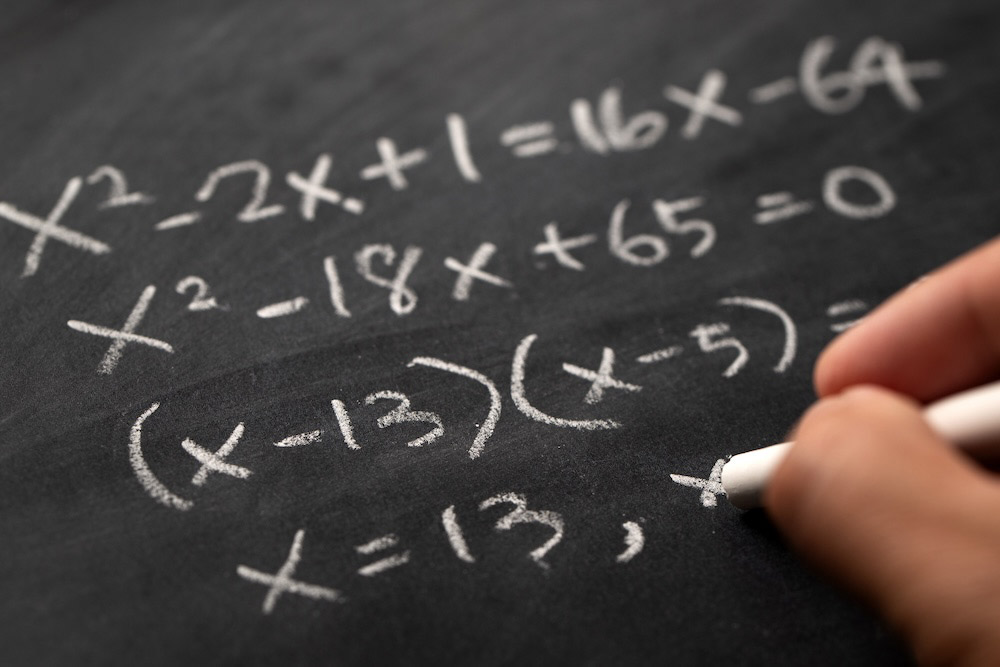 x² - 2x + 1 = 16x - 64
x² - 18x + 65 = 0
(x - 13)(x - 5) =
x = 13, x